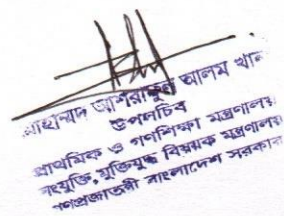 মোহাম্মদ আশরাফুল আলম খান
উপসচিব
প্রাথমিক ও গণশিক্ষা মন্ত্রণালয়
সংযুক্তি, মুক্তিযুদ্ধ বিষয়ক মন্ত্রণালয়
গণপ্রজাতন্ত্রী বাংলাদেশ সরকার